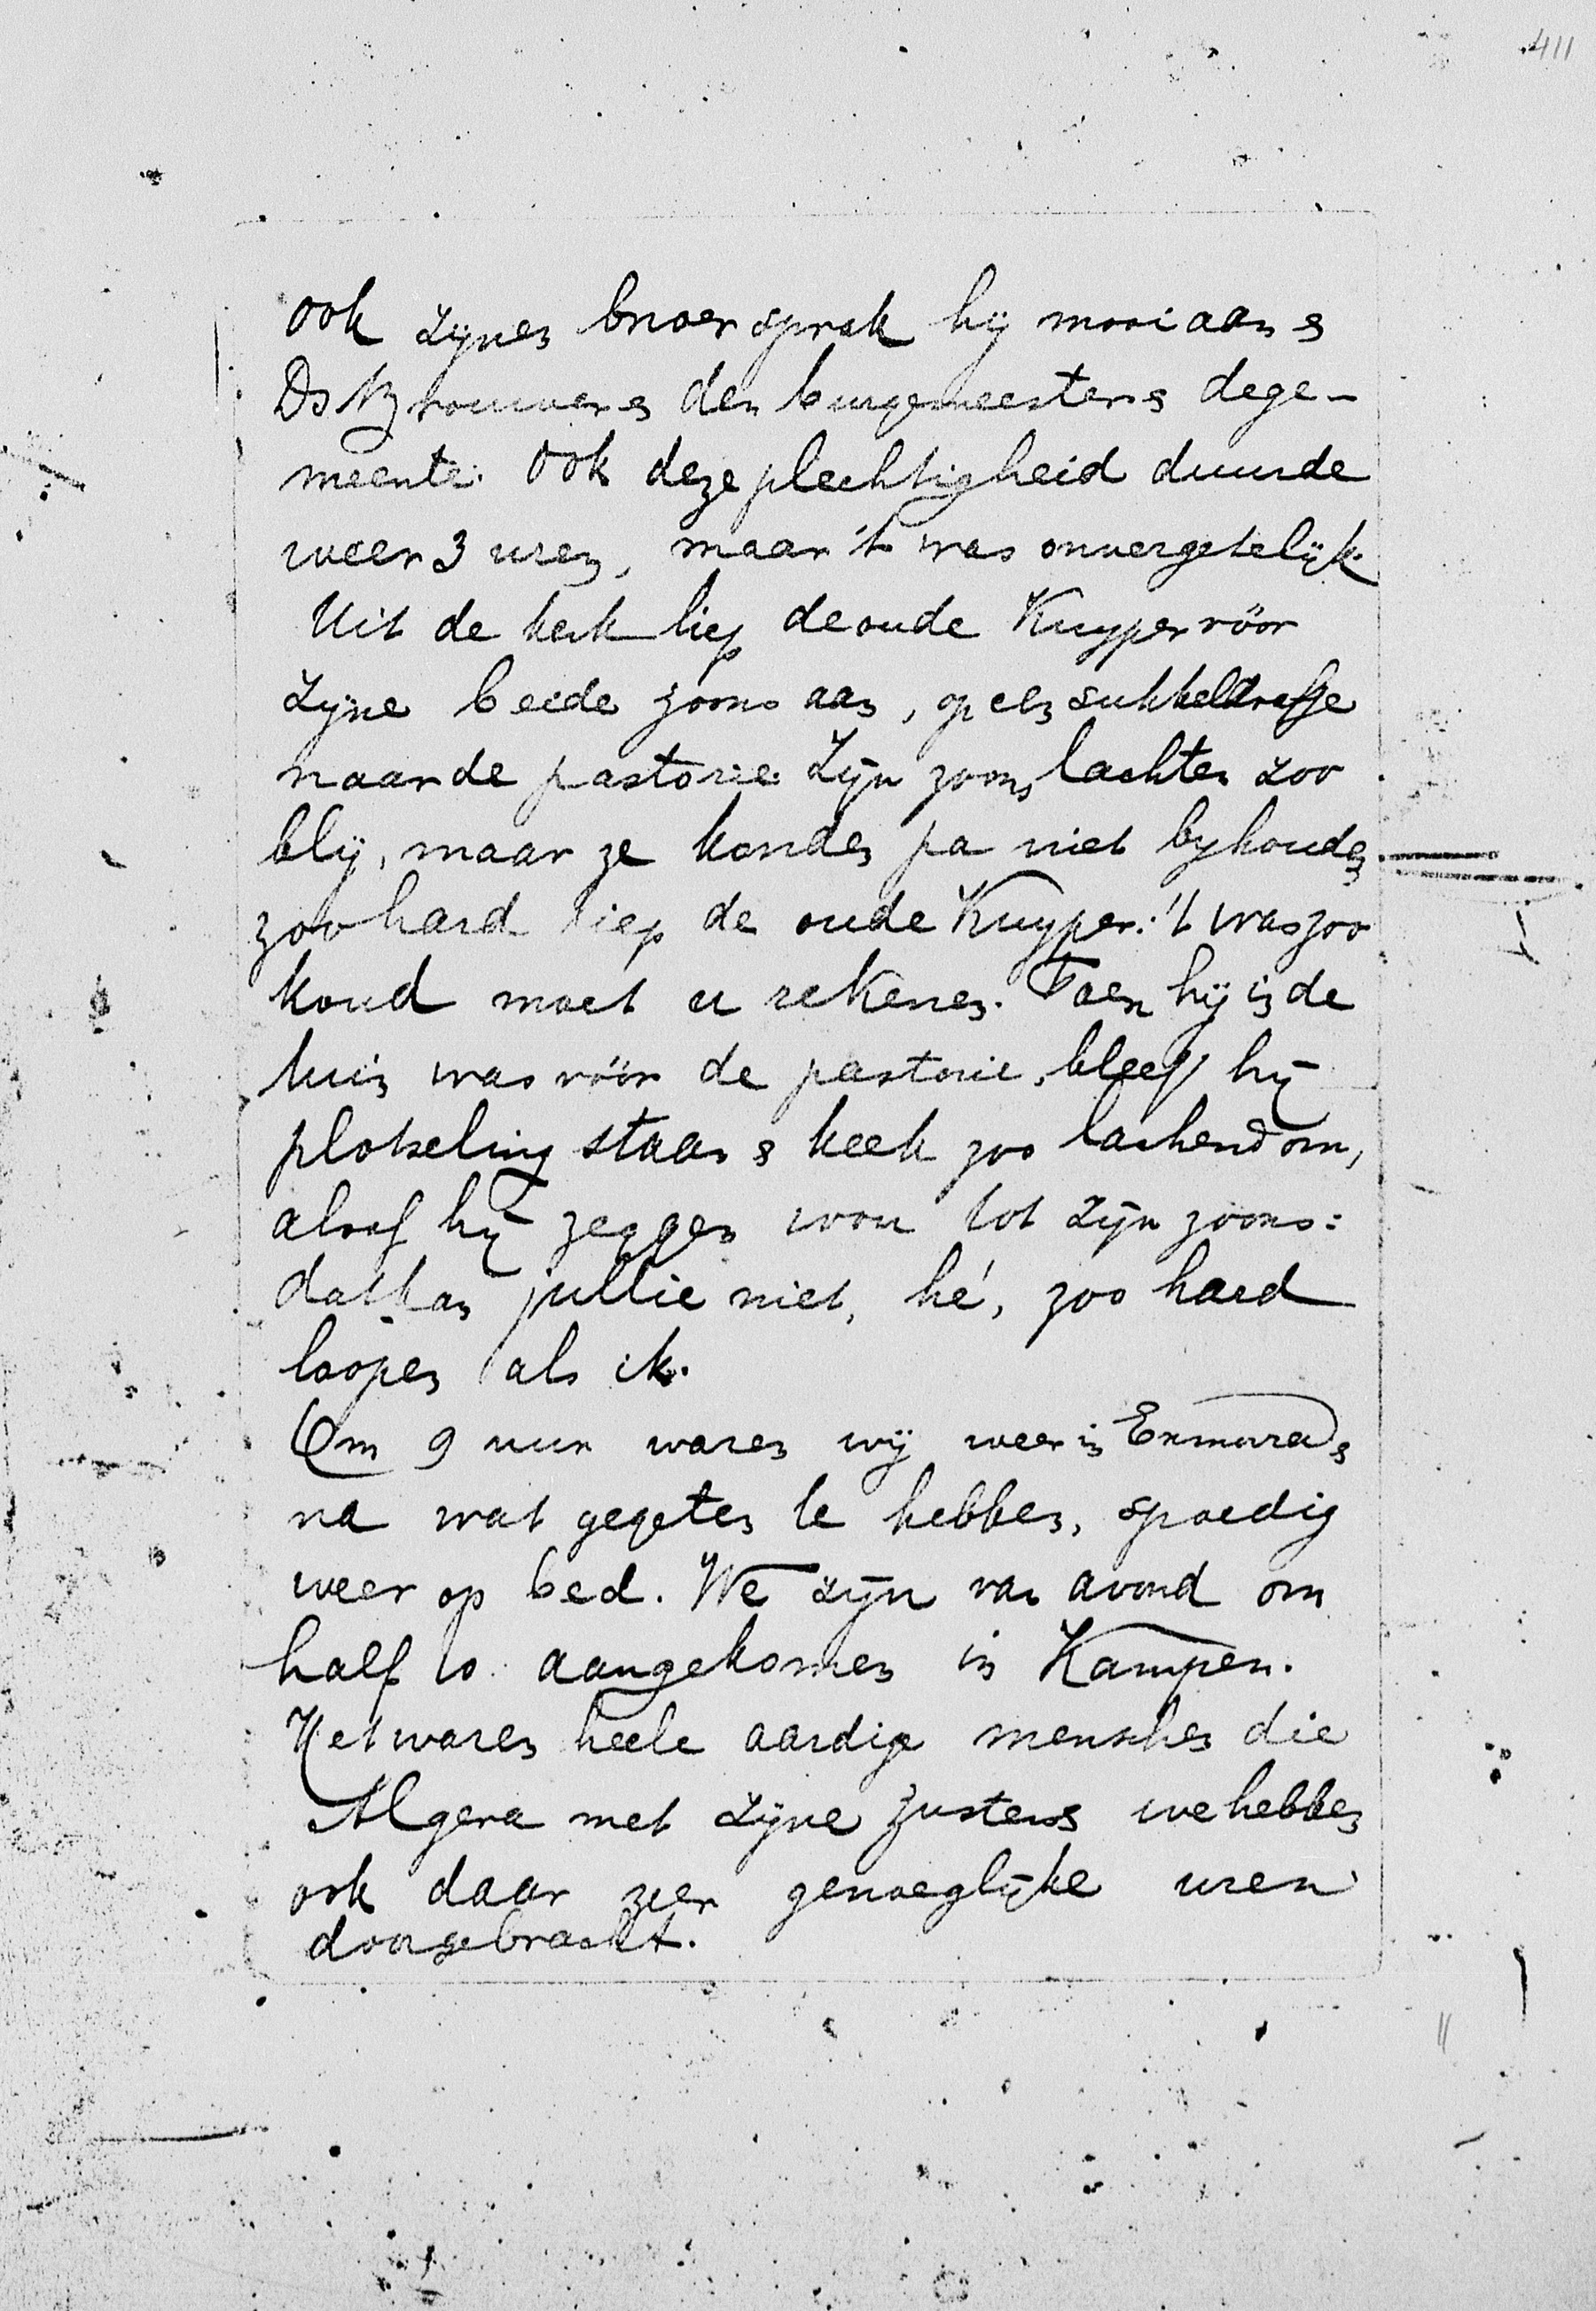 411
Ook zijnen broer sprak hij mooi aan &
Ds Brouwer & den burgemeester & de ge-
meente. Ook deze plechtigheid duurde
weer 3 uren, maar 't was onvergetelijk.
Uit de kerk liep de oude Kuyper vóór
zijne beide zoons aan, op een sukkeldrafje
naar de pastorie. Zijn zoons lachten zoo
blij, maar ze konden pa niet bijhouden
zoo hard liep de oude Kuyper. 't was zoo
koud moet u rekenen. Toen hij in de
tuin was vóór de pastorie, bleef hij
plotseling staan & keek zoo lachend om,
alsof hij zeggen wou tot zijn zoons:
dat kan jullie niet, hé, zoo hard
loopen als ik.
Om 9 uur waren wij weer in Exmorra &
na wat gegeten te hebben, spoedig
weer op bed. We zijn van avond om
half 10 aangekomen in Kampen.
Het waren heele aardige menschen die
Algera met zijne zusters we hebben
ook daar zeer genoeglijke uren
doorgebracht.